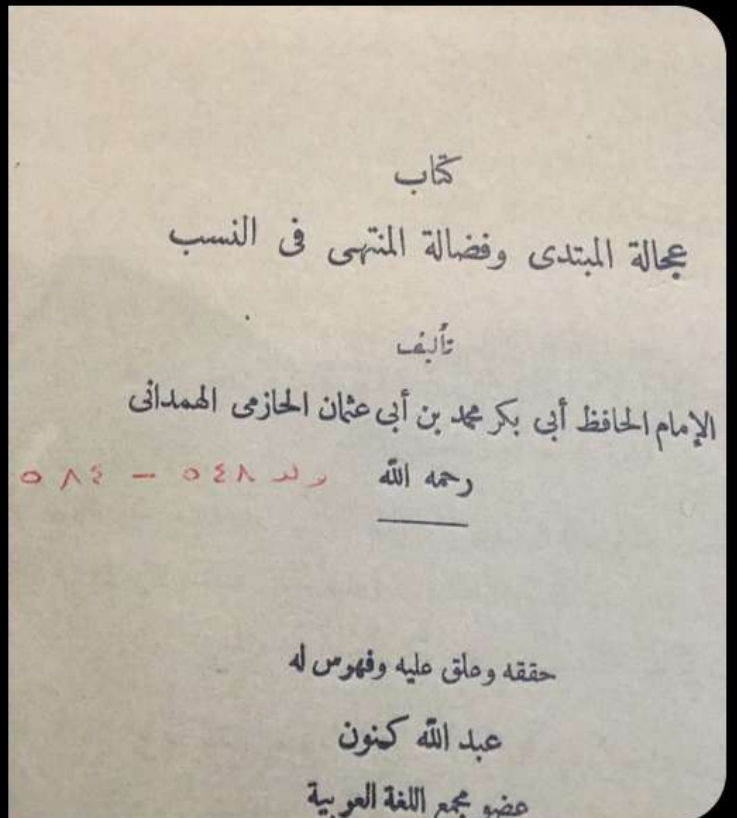 كتاب
عجالة المبتدى وفضالة المنتهى فى النسب
تأليف
الإمام الحافظ أبى بكر محمد بن أبى عثمان الحازمى الهمدانى
رحمه الله ولد ٥٤٨ – ٥٨٤
حققه وعلق عليه وفهرس له
عبد الله كنون
عضو مجمع اللغة العربية